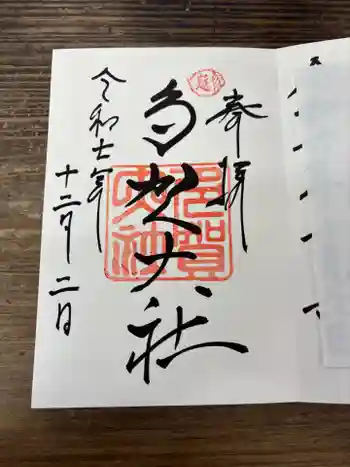 奉拝
多賀大社
多賀大社
令和七年
十二月二日